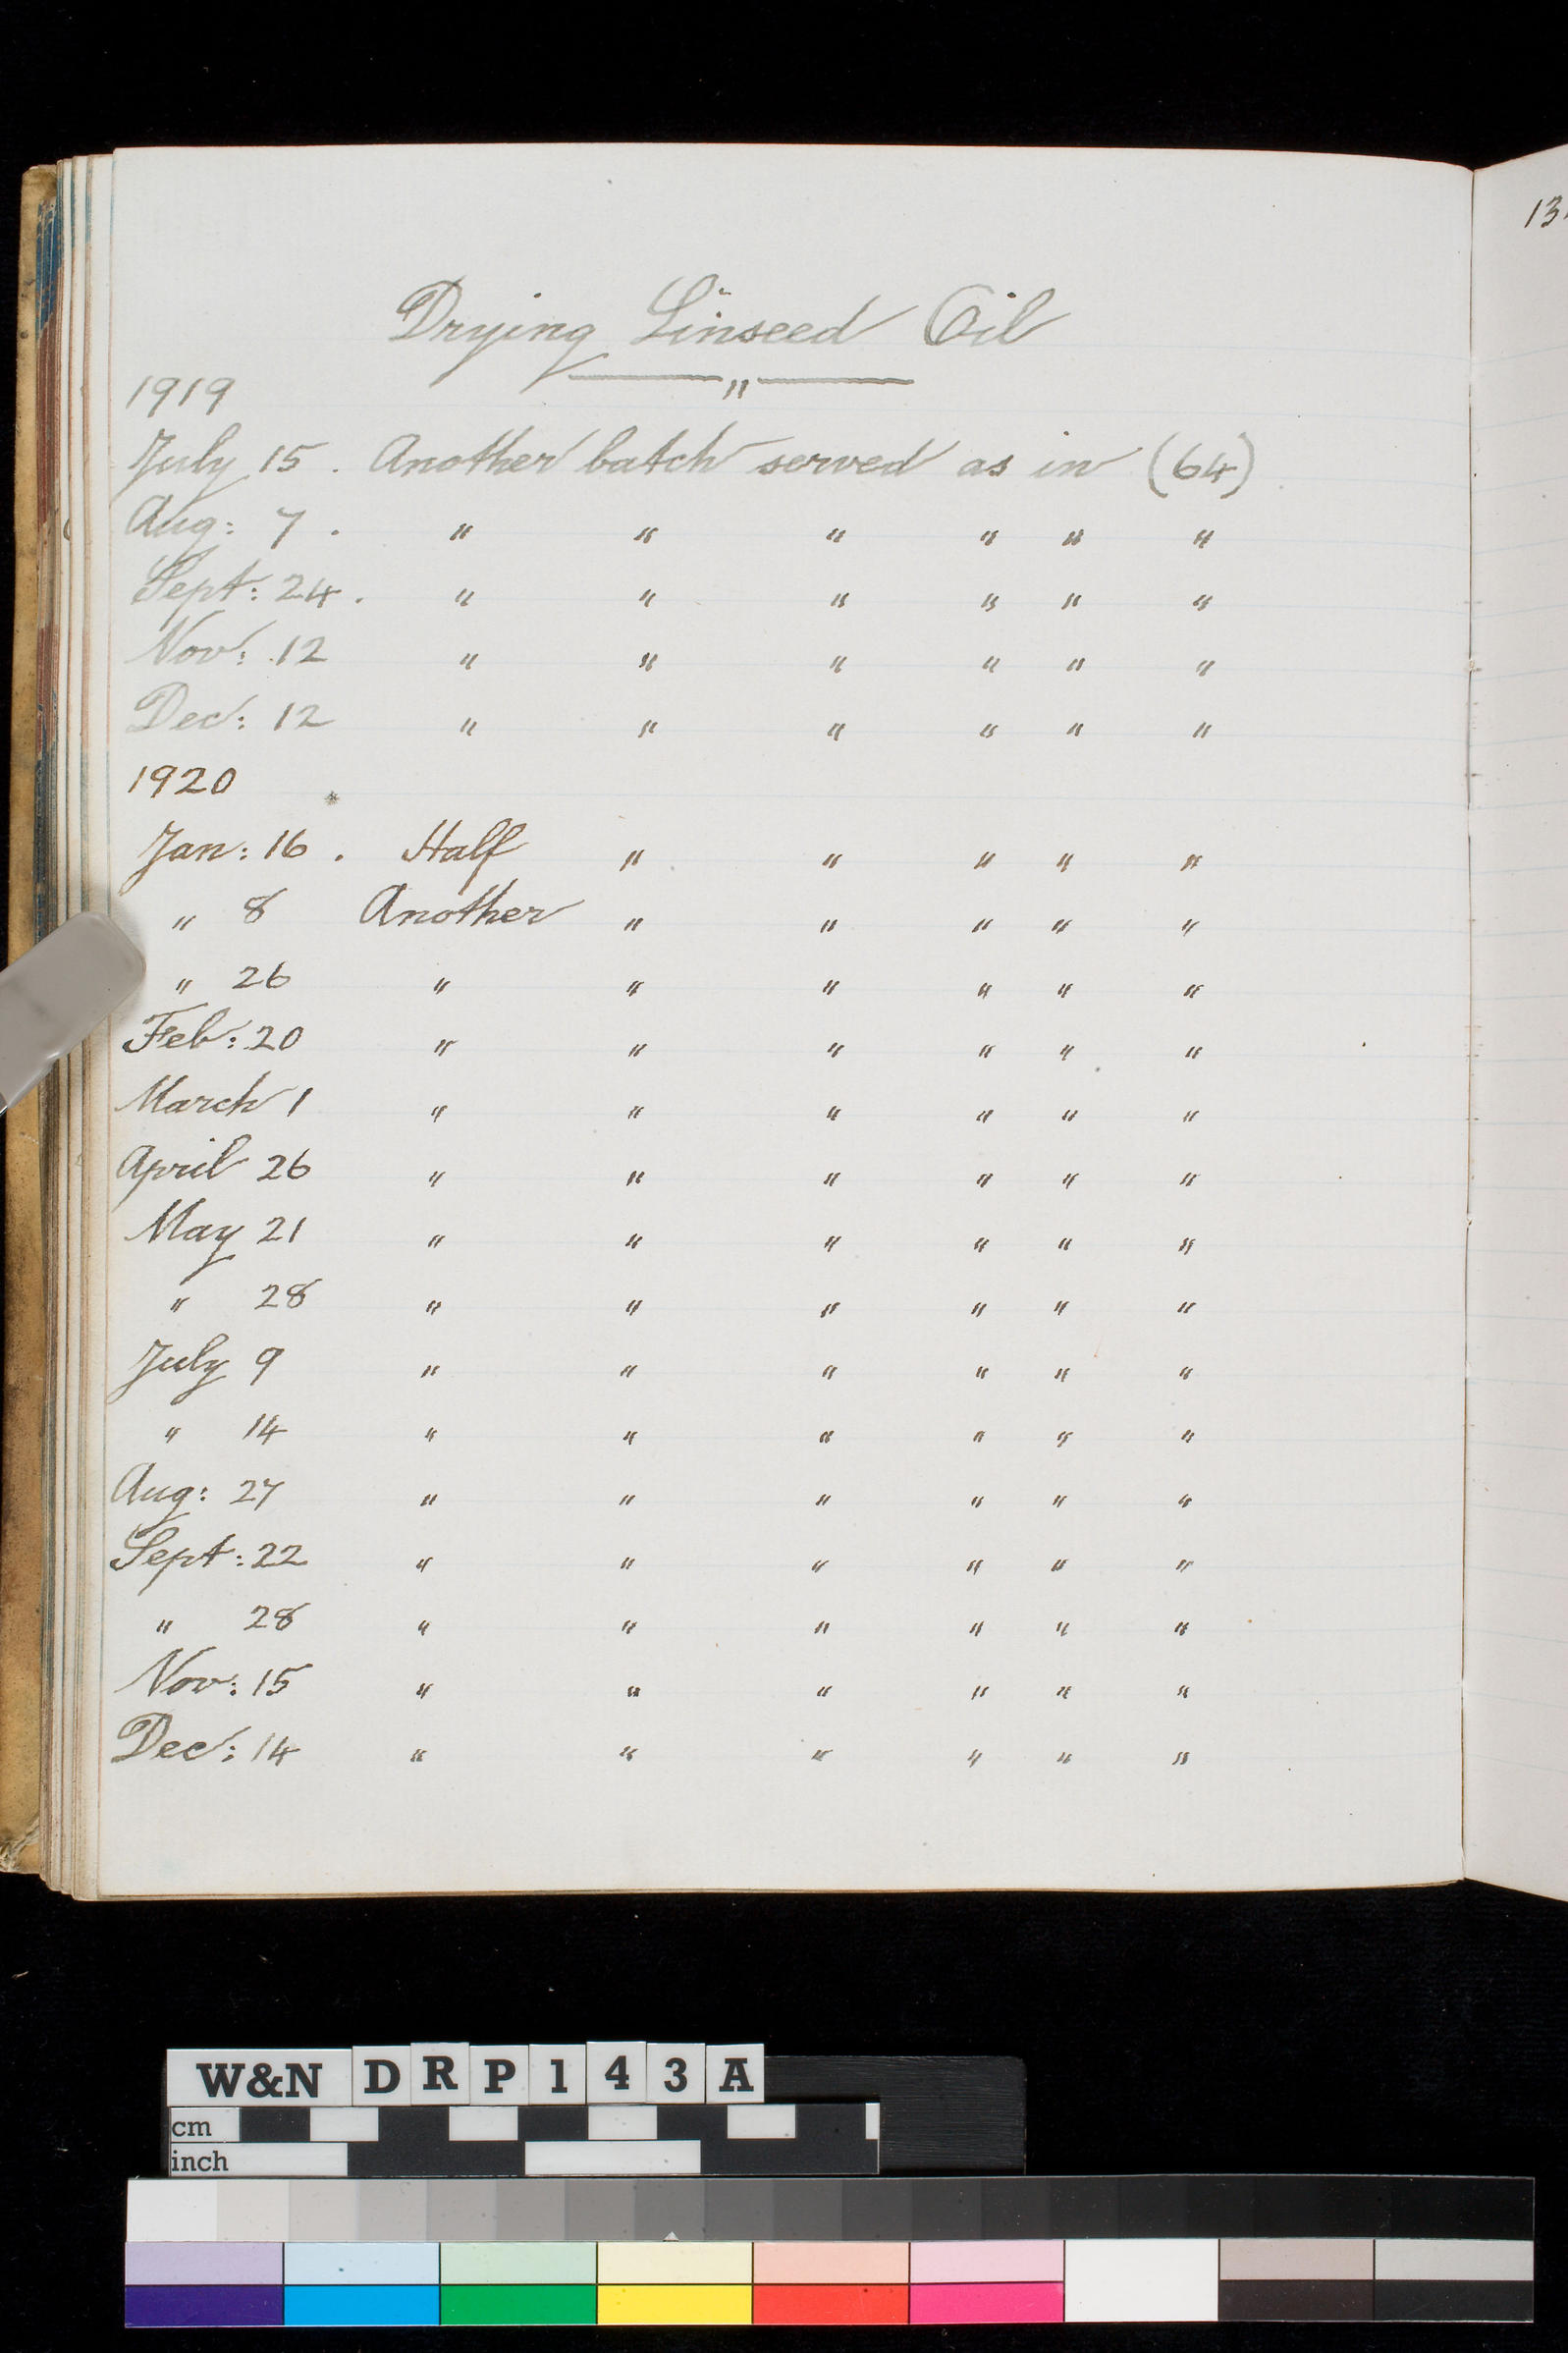 13
Drying Linseed Oil
"
1919
July 15 . Another batch served as in (64)
Aug: 7 . " " " " " "
Sept: 24 . " " " " " "
Nov: 12 " " " " " "
Dec: 12 " " " " " "
1920
Jan: 16 . Half " " " " "
" 8 Another " " " " "
" 26 " " " " " "
Feb: 20 " " " " " "
March 1 " " " " " "
April 26 " " " " " "
May 21 " " " " " "
" 28 " " " " " "
July 9 " " " " " "
" 14 " " " " " "
Aug: 27 " " " " " "
Sept: 22 " " " " " "
" 28 " " " " " "
Nov: 15 " " " " " "
Dec: 14 " " " " " "
W&N DRP143A
cm
inch